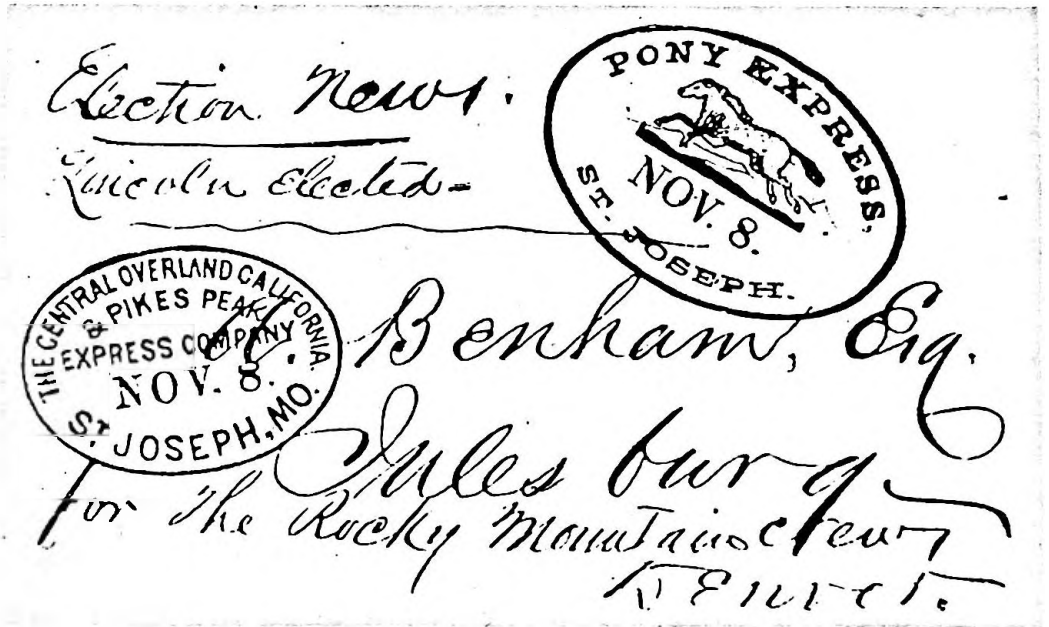 Election News.
Lincoln Elected -
PONY EXPRESS,
NOV. 8.
ST. JOSEPH.
THE CENTRAL OVERLAND CALIFORNIA.
& PIKES PEAK
EXPRESS COMPANY
NOV. 8.
ST. JOSEPH, MO.
Benham, Esq.
Julesburg
for The Rocky Mountain News
Denver.